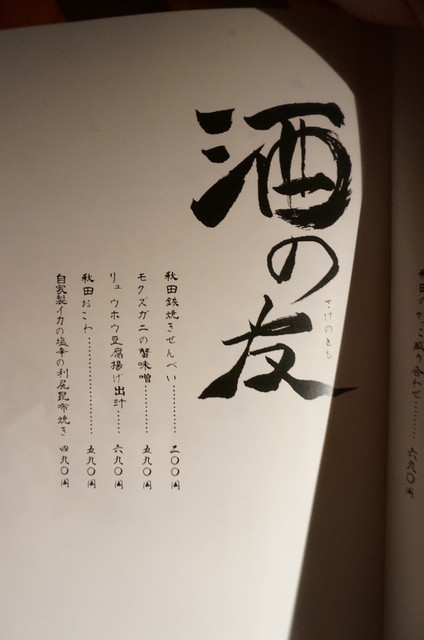 秋田のがっこ盛り合わせ………六九〇円
酒の友
さけのとも
秋田鉄焼きせんべい…………三〇〇円
モクズガニの蟹味噌…………五九〇円
リュウホウ豆腐揚げ出汁……六九〇円
秋田おこわ……………………五九〇円
自家製イカの塩辛の利尻昆布焼き 四九〇円